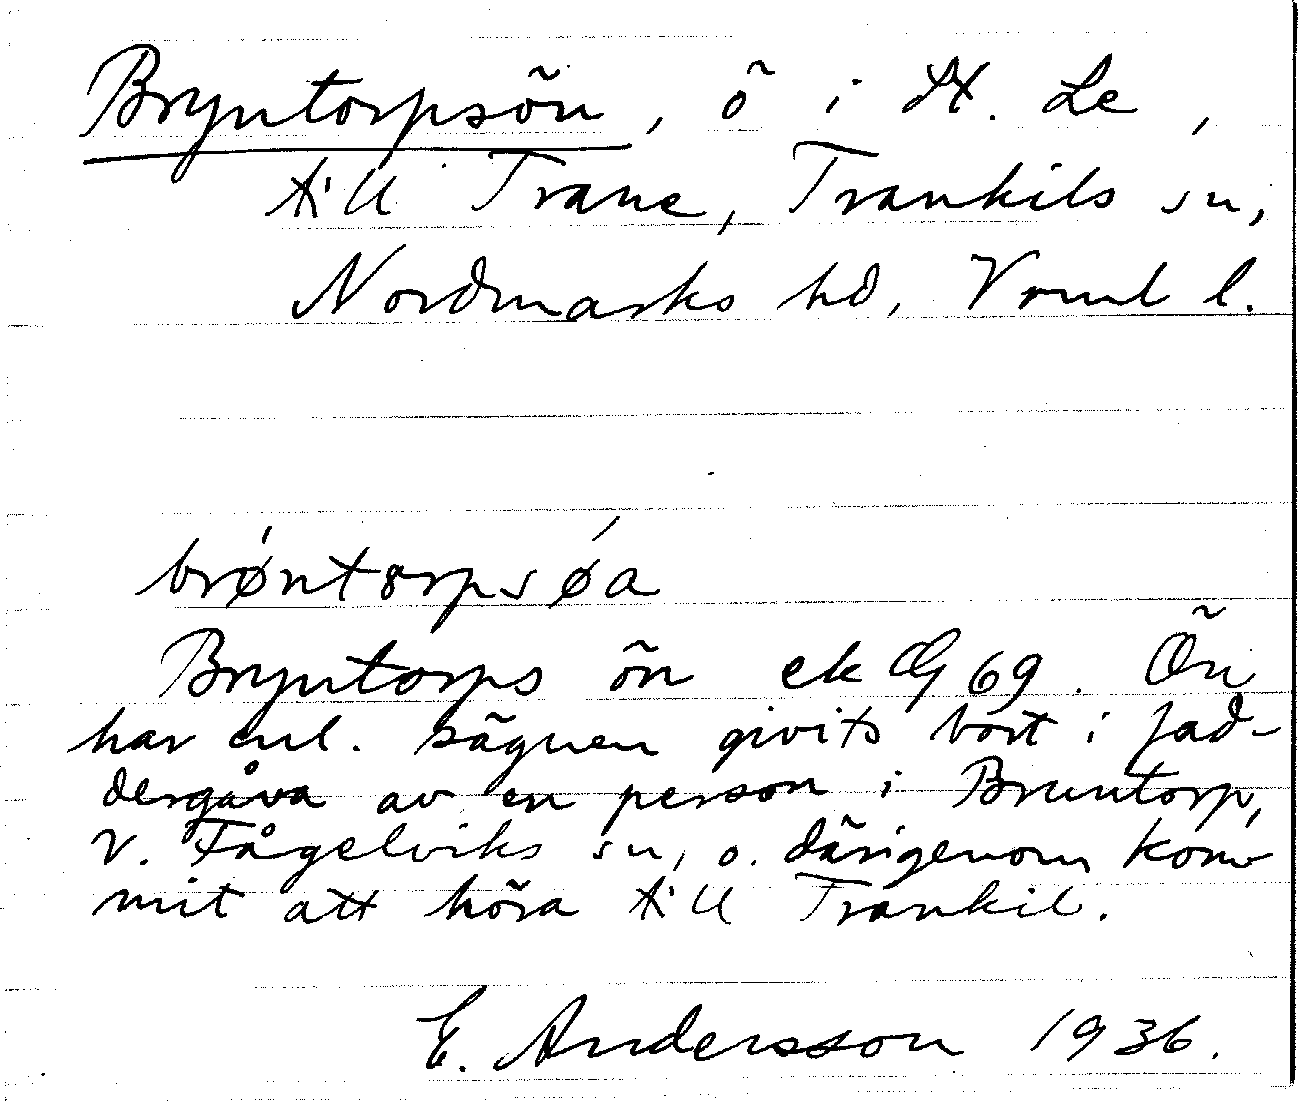 Bryntorpsön, ö i St. Le,
till Trane, Trankils sn,
Nordmarks hd, Vrml l.
brǿntorpsǿa
Bryntorps ön ek G 69. Ön
har enl. sägnen givits bort i fad-
dergåva av en person i Bruntorp,
V. Fågelviks sn, o. därigenom kom-
mit att höra till Trankil.
E. Andersson 1936.